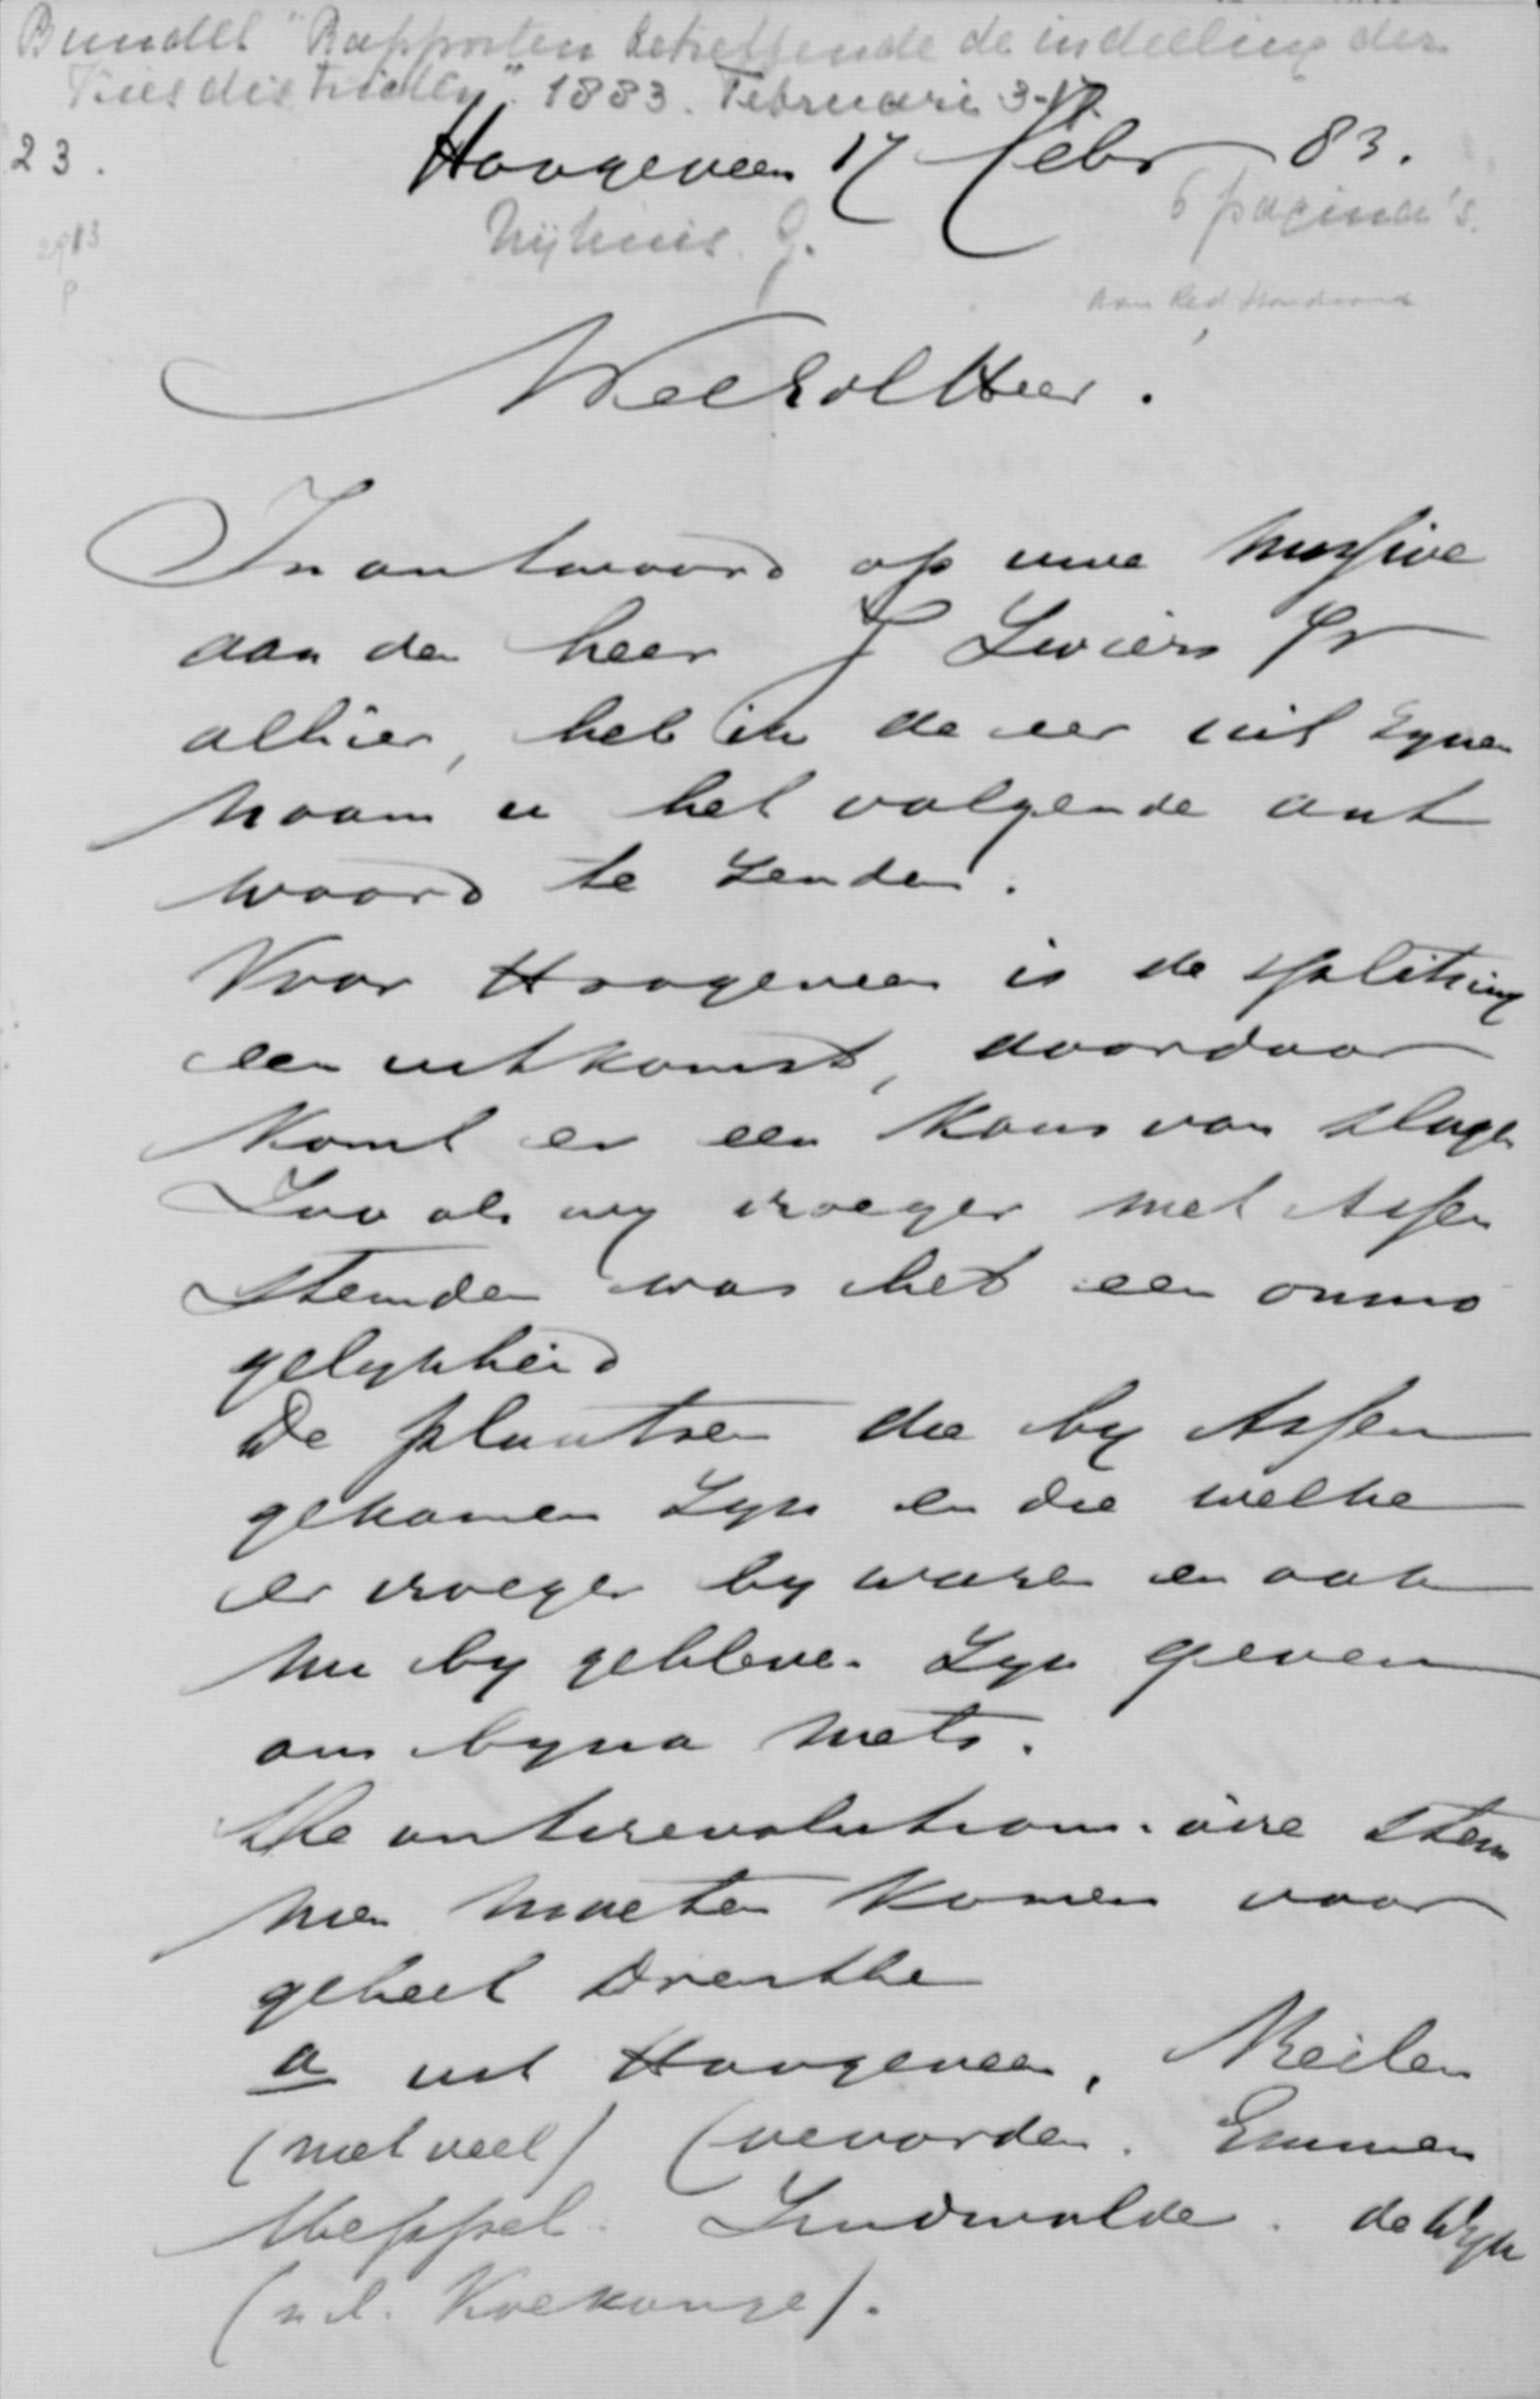 Bundel "Rapporten betreffende de indeeling der
Kiesdistricten". 1883. Februari 3-17.
23.
Hoogeveen 17 Febr 83.
6 pagina's.
Nijhuis. G.
2983
P
aan Red Standaard
WelEdel Heer.
In antwoord op uwe missive
aan den heer J Zwiers Jr
alhier, heb ik de eer uit zynen
naam u het volgende ant
woord te zenden.
Voor Hoogeveen is de splitsing
een uitkomst, daardoor
komt er een kans van slagen
Zoo als wy vroeger met Assen
stemden was het een onmo
gelykheid
De plaatsen die by Assen
gekomen zyn en die welke
er vroeger by waren en ook
nu by gebleven zyn geven
ons byna niets.
De antirevolutionaire stem
men moeten komen voor
geheel Drenthe
a uit Hoogeveen, Beilen
(niet veel) Coevorden. Emmen
Meppel. Zuidwolde. de Wyk
(n.l. Koekange).